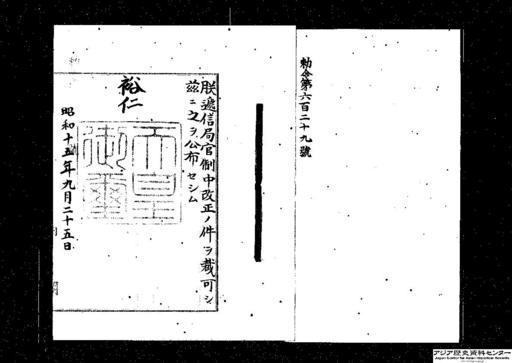 勅令第六百二十九號
朕遞信局官制中改正ノ件ヲ裁可シ
茲ニ之ヲ公布セシム
裕仁
天皇御璽
昭和十五年九月二十五日
アジア歴史資料センター
Japan Center for Asian Historical Records